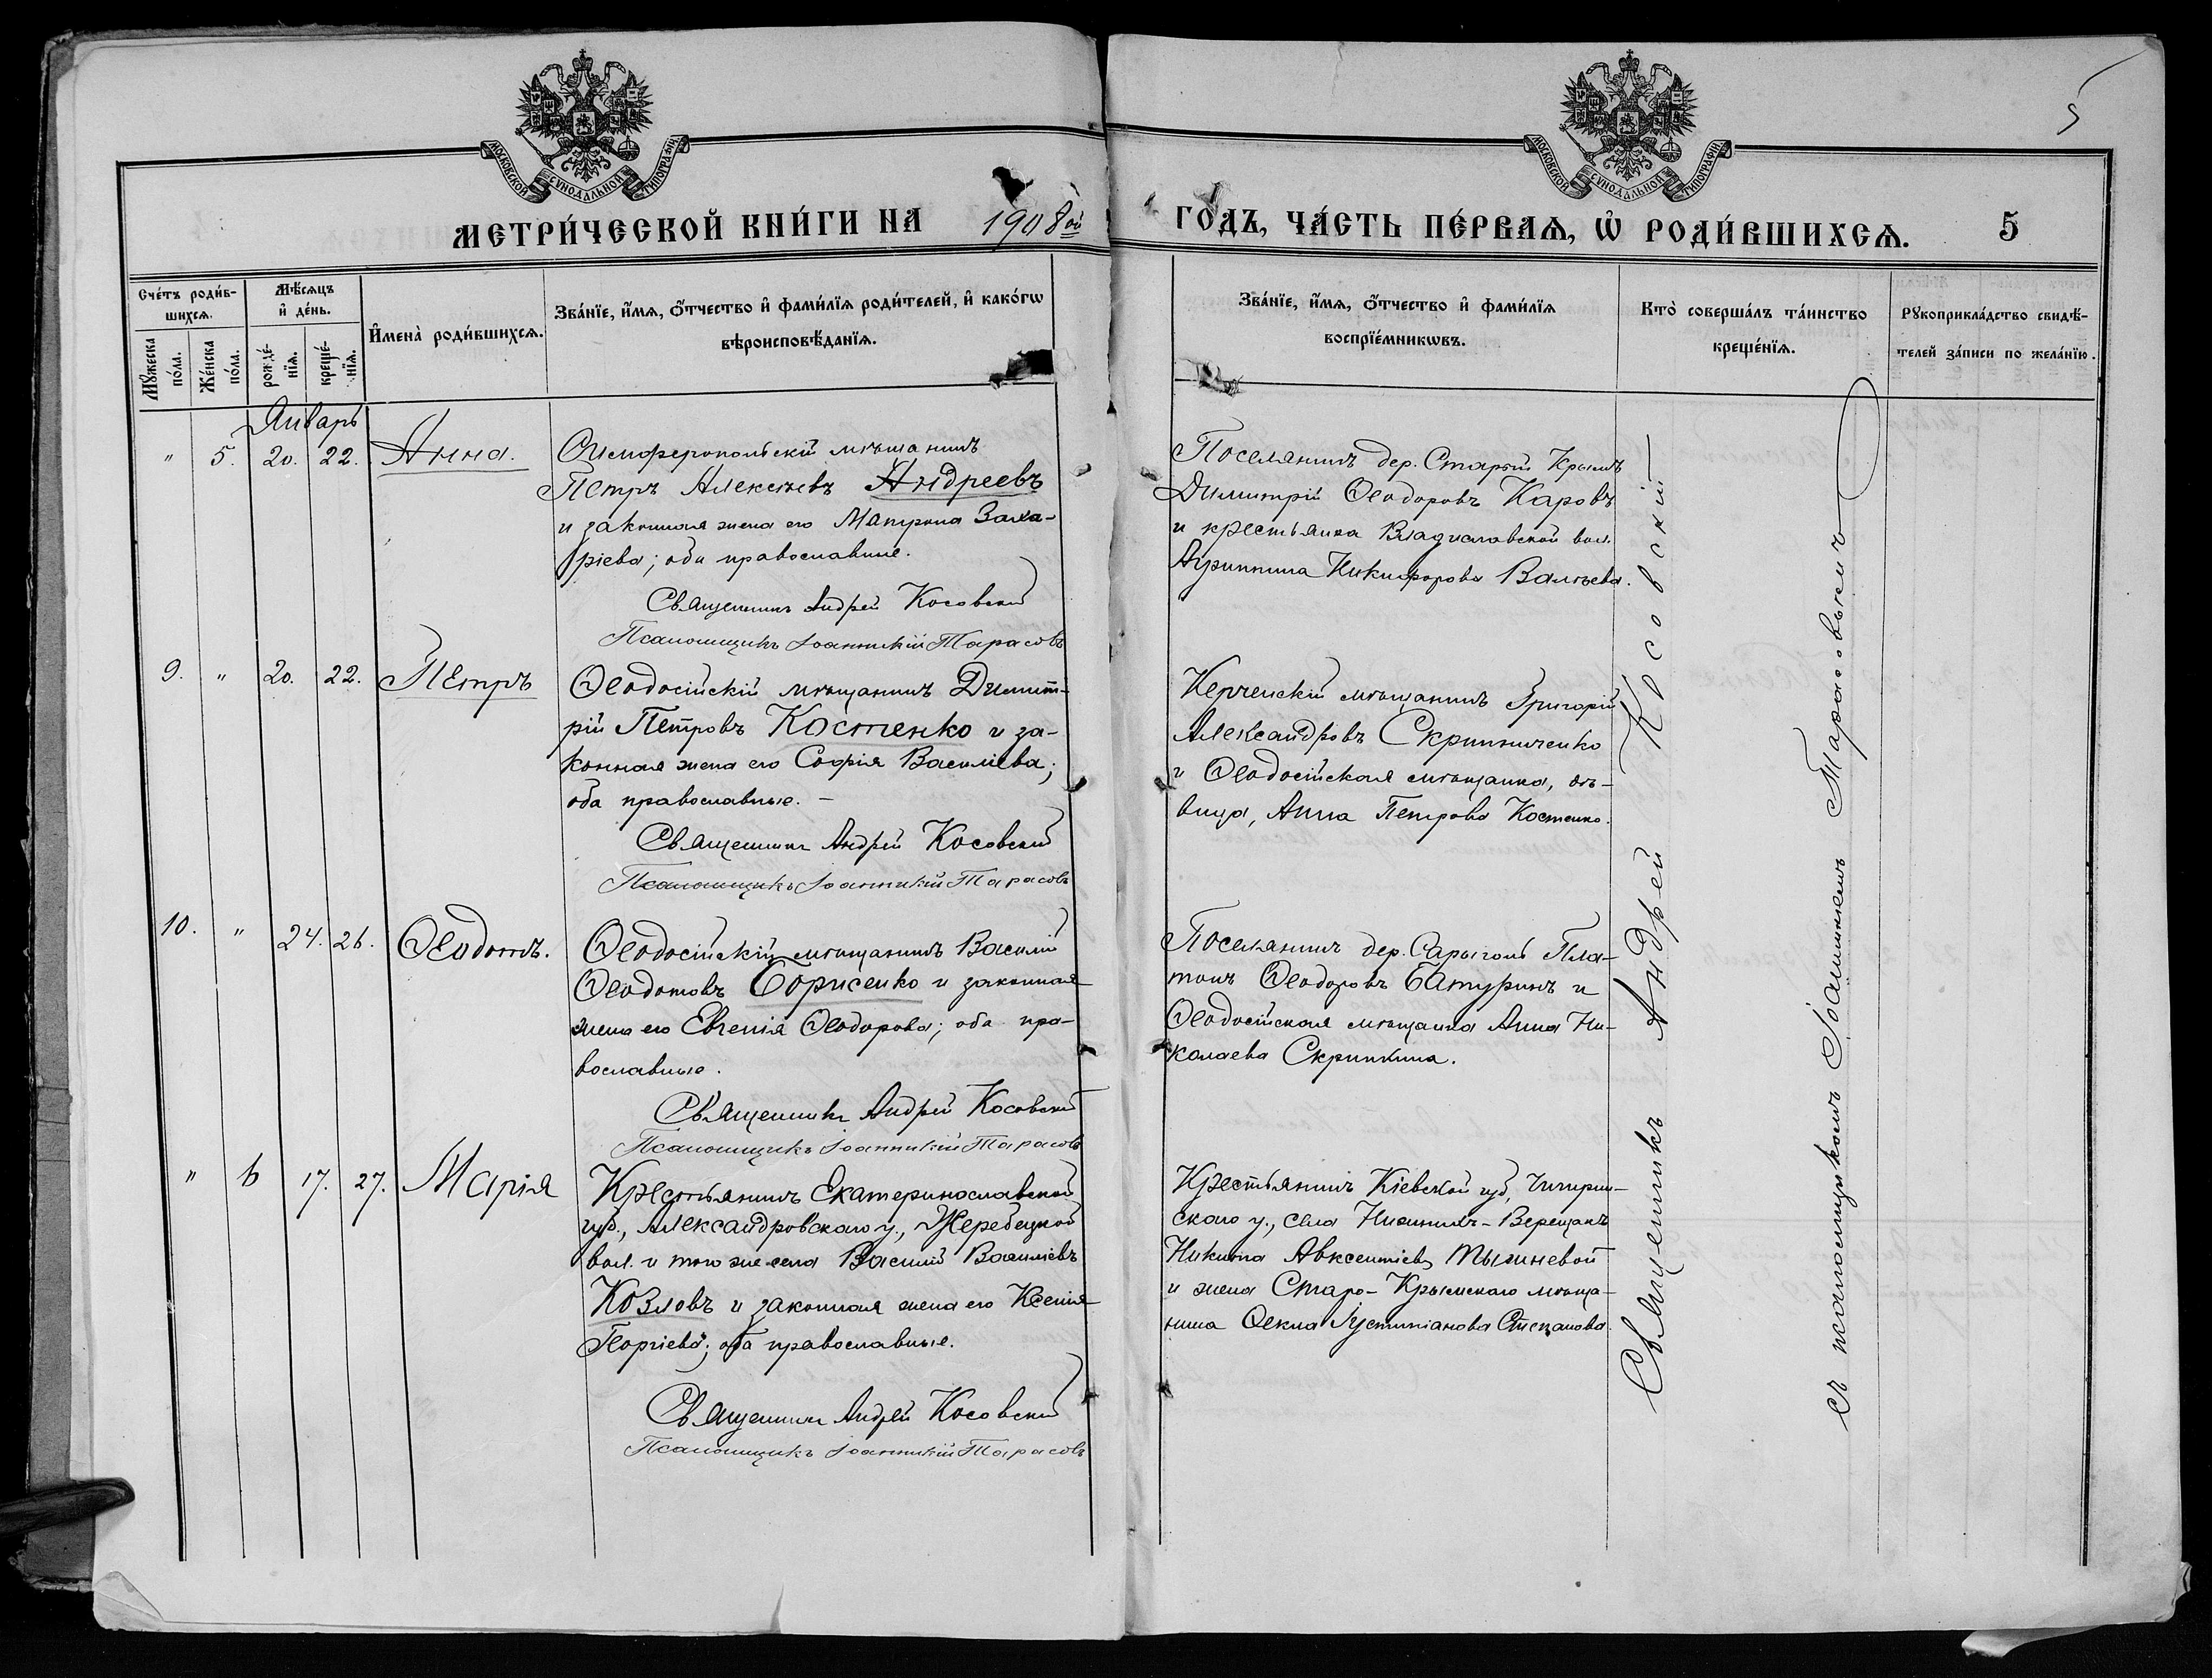 МОСКОВСКОЙ СѴНОДАЛЬНОЙ ТИПОГРАФІИ
МОСКОВСКОЙ СѴНОДАЛЬНОЙ ТИПОГРАФІИ
5
МЕТРИ́ЧЕСКОЙ КНИ́ГИ НА 1908ой ГОДЪ, ЧА́СТЬ ПЕ́РВАѦ, Ѡ҆ РОДИ́ВШИХСѦ. 5
Сче́тъ роди́в-
шихсѧ.
Мꙋ́жеска по́ла.
Же́нска по́ла.
Мѣ́сѧцъ
и҆ де́нь.
рожде́-
нїѧ.
креще́-
нїѧ.
И҆мена̀ роди́вшихсѧ.
Зва́нїе, и҆́мѧ, ѻ҆́тчество и҆ фами́лїѧ роди́телей, и҆ како́гѡ
вѣроисповѣ́данїѧ.
Зва́нїе, и҆́мѧ, ѻ҆́тчество и҆ фами́лїѧ
воспрїе́мникѡвъ.
Кто̀ соверша́лъ та́инство
креще́нїѧ.
Рꙋкоприкла́дство свидѣ́-
телей за́писи по жела́нїю.
Январь
" 5. 20. 22. Анна.
Симферопольскій мѣщанинъ
Петръ Алексѣевъ Андреевъ
и законная жена его Матрона Заха-
ріева; оба православные.
Священникъ Андрей Косовскій
Псаломщикъ Іоанникій Тарасовъ
Поселянинъ дер. Старый Крымъ
Димитрій Ѳеодоровъ Каровъ
и крестьянка Владиславской вол.
Агриппина Никифорова Валѣева.
9. " 20. 22. Петръ
Ѳеодосійскій мѣщанинъ Димит-
рій Петровъ Костенко и за-
конная жена его Софія Василіева;
оба православные. –
Священникъ Андрей Косовскій
Псаломщикъ Іоанникій Тарасовъ
Керченскій мѣщанинъ Григорій
Александровъ Скрипниченко
и Ѳеодосійская мѣщанка, дѣ-
вица, Анна Петрова Костенко.
10. " 24. 26. Ѳеодотъ.
Ѳеодосійскій мѣщанинъ Василій
Ѳеодотовъ Борисенко и законная
жена его Евгенія Ѳеодорова; оба пра-
вославные.
Священникъ Андрей Косовскій
Псаломщикъ Іоанникій Тарасовъ
Поселянинъ дер. Сарыголь Пла-
тонъ Ѳеодоровъ Батуринъ и
Ѳеодосійская мѣщанка Анна Ни-
колаева Скрипкина.
" 6 17. 27. Марія
Крестьянинъ Екатеринославской
губ., Александровскаго у., Жеребецкой
вол. и того же села Василій Василіевъ
Козловъ и законная жена его Ксенія
Георгіева; оба православные.
Священникъ Андрей Косовскій
Псаломщикъ Іоанникій Тарасовъ
Крестьянинъ Кіевской губ, Чигирин-
скаго у., села Нижнихъ-Верещакъ
Никита Авксентіевъ
и жена Старо-Крымскаго мѣща-
нина Ѳекла Іустиніанова Степанова.
Священникъ Андрей Косовскій
съ псаломщикомъ Іоанникіемъ Тарасовымъ